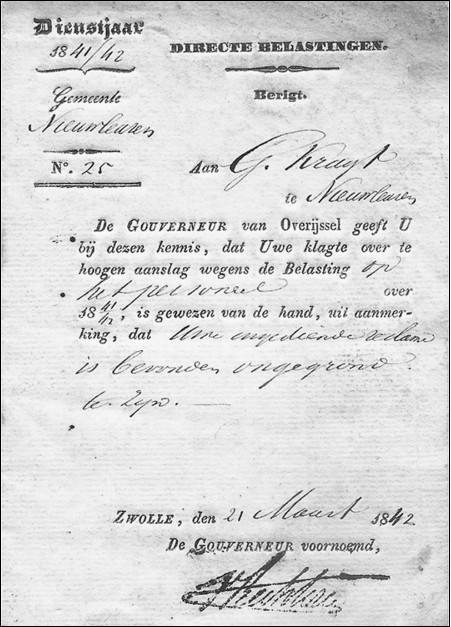 Dienstjaar
1841/42
DIRECTE BELASTINGEN.
Gemeente
Berigt.
Nieuwleusen
No. 25
Aan G. Kragt
te Nieuwleusen
De GOUVERNEUR van Overijssel geeft U
bij dezen kennis, dat Uwe klagte over te
hoogen aanslag wegens de Belasting op
het personeel over
18 41/42, is gewezen van de hand, uit aanmer-
king, dat Uwe ingediende reclame
is bevonden ongegrond
te zijn. —
ZWOLLE, den 21 Maart 1842
De GOUVERNEUR voornoemd,